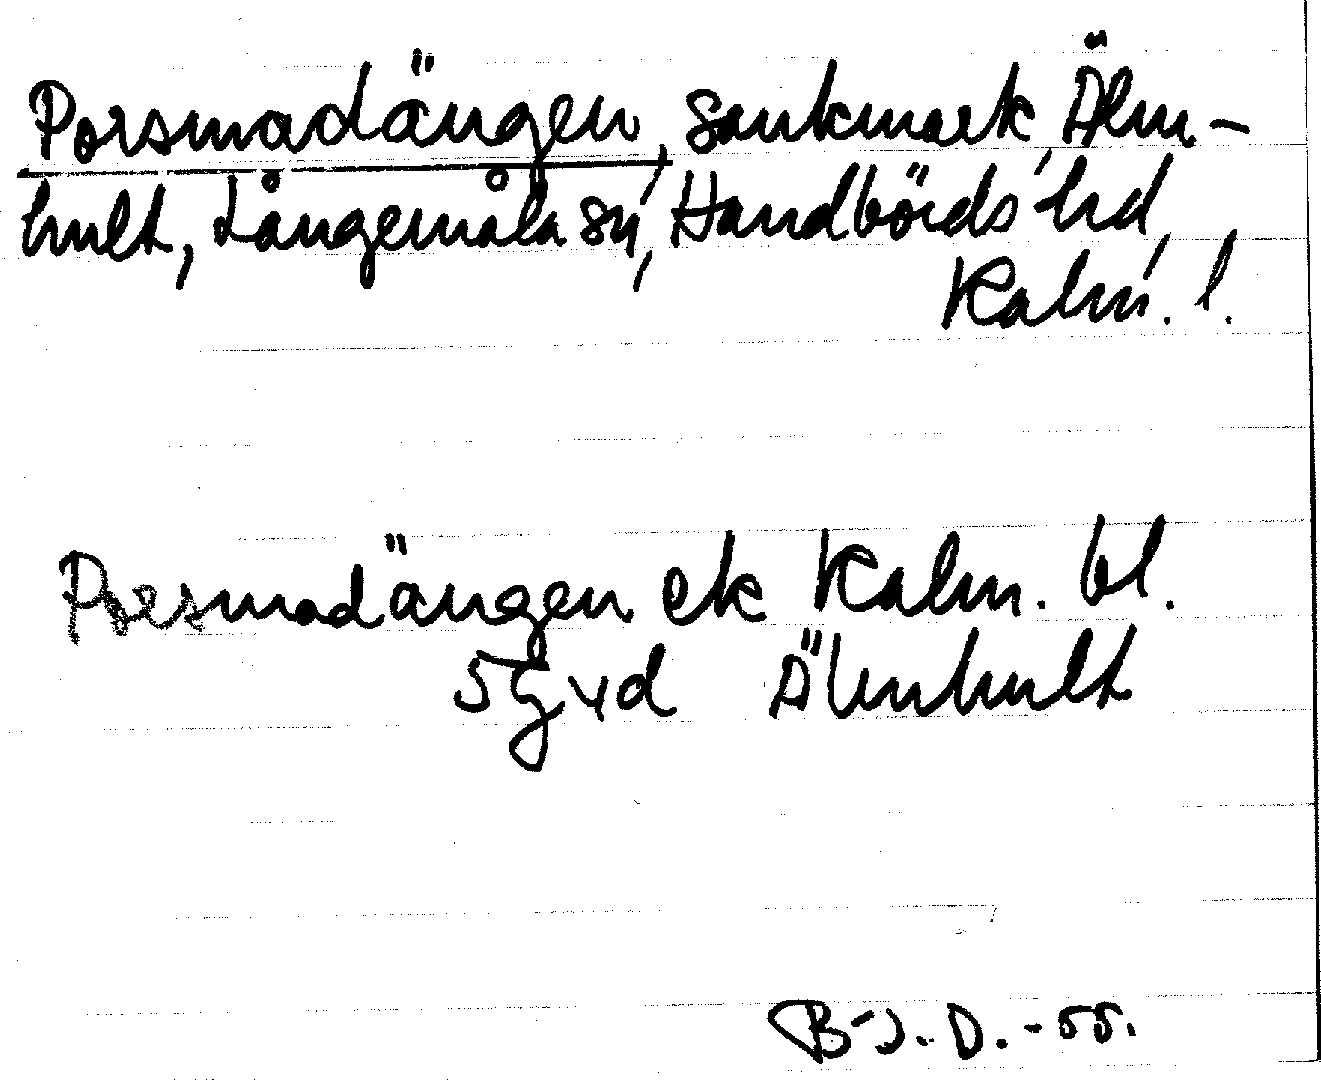 Porsmadängen, sankmark, Älm-
hult, Långemåla sn, Handbörds hd,
Kalm. l.
Porsmadängen ek Kalm. bl.
5g yd Älmhult
B-J. D. -55.